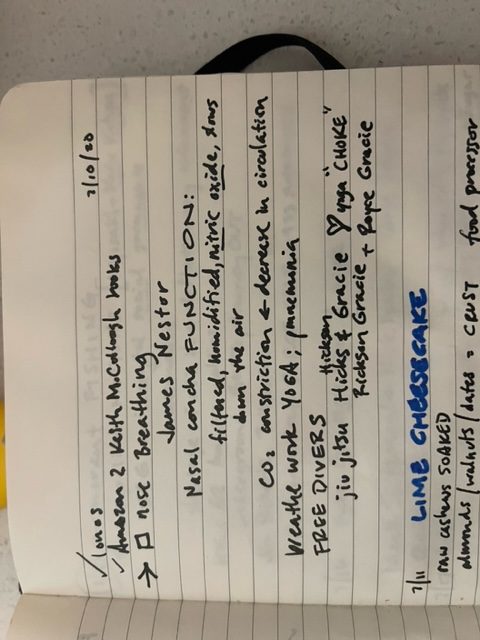 7/10/20
✓ lomos
✓ Amazon 2 Keith McCullough books
→ □ nose breathing
James Nestor
Nasal concha FUNCTION:
filtered, humidified, nitric oxide, slows
down the air
CO2 constriction ← decrease in circulation
breathe work YOGA; pnemonia
FREE DIVERS
Hickson
jiu jitsu Hicks & Gracie ♡ yoga "CHOKE"
Rickson Gracie + Royce Gracie
7/11 LIME CHEESECAKE
raw cashews SOAKED
almonds/walnuts/dates = CRUST food processor